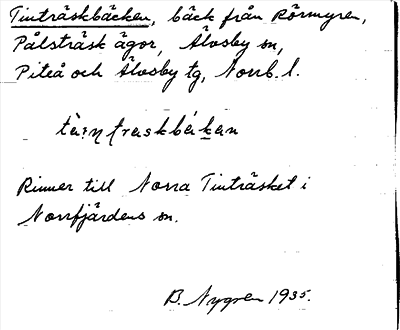 Tinträskbäcken, bäck från Rörmyren,
Pålsträsk ägor, Älvsby sn,
Piteå och Älvsby tg, Norrb. l.
Rinner till Norra Tinträsket i
Norrfjärdens sn.
B. Nygren 1935.